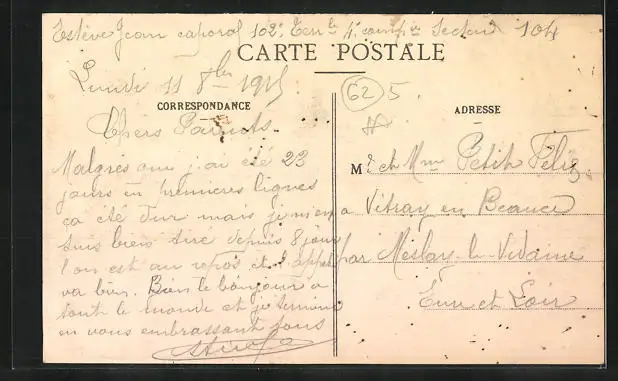 Estève Jean caporal 102e Terr le 4e comp ie Secteur 104
CARTE POSTALE
Lundi 11 8bre 1915
62 5
CORRESPONDANCE
ADRESSE
Chers Parents
Malgrès que j'ai été 23
jours en premieres lignes
ça été dur mais je m'en
suis bien tiré depuis 8 jours
l'on est au repos et l'appetit
va bien. Bien le bonjour a
tout le monde et je termine
en vous embrassant tous
Mr et Mme Petit Félix
a Vitray en Beauce
par Meslay-le-Vidame
Eure et Loir